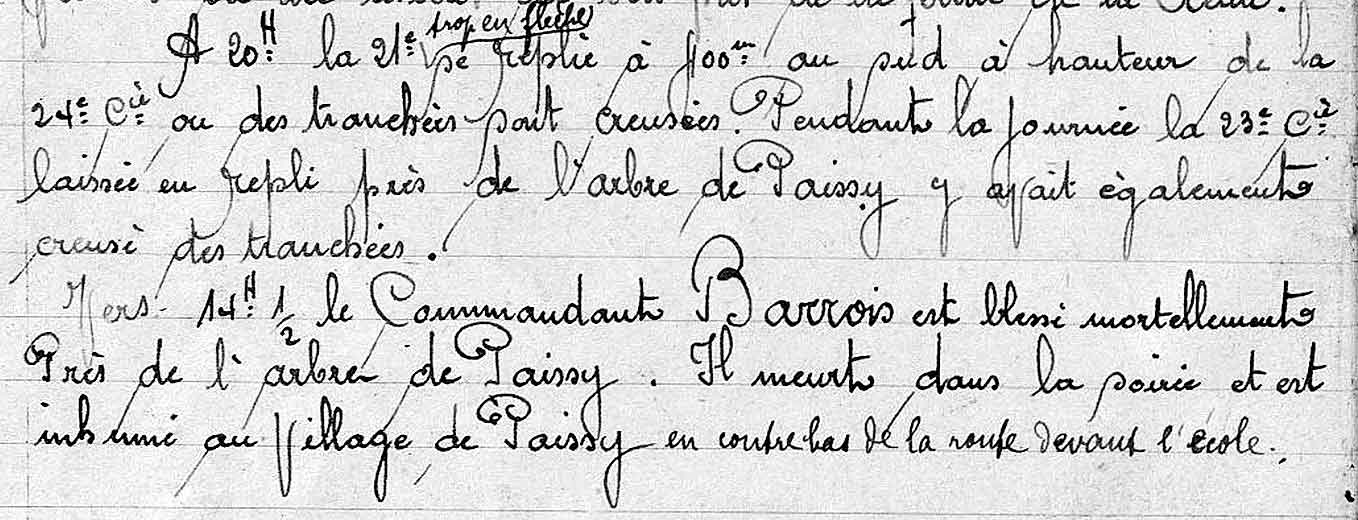 trop en flèche
A 20H la 21e se replie à 400m au sud à hauteur de la
24e Cie ou des tranchées sont creusées. Pendant la journée la 23e Cie
laissée en repli près de l'arbre de Paissy y avait également
creusé des tranchées.
Vers 14H 1/2 le Commandant Barrois est blessé mortellement
Près de l'arbre de Paissy. Il meurt dans la soirée et est
inhumé au village de Paissy en contrebas de la route devant l'école.